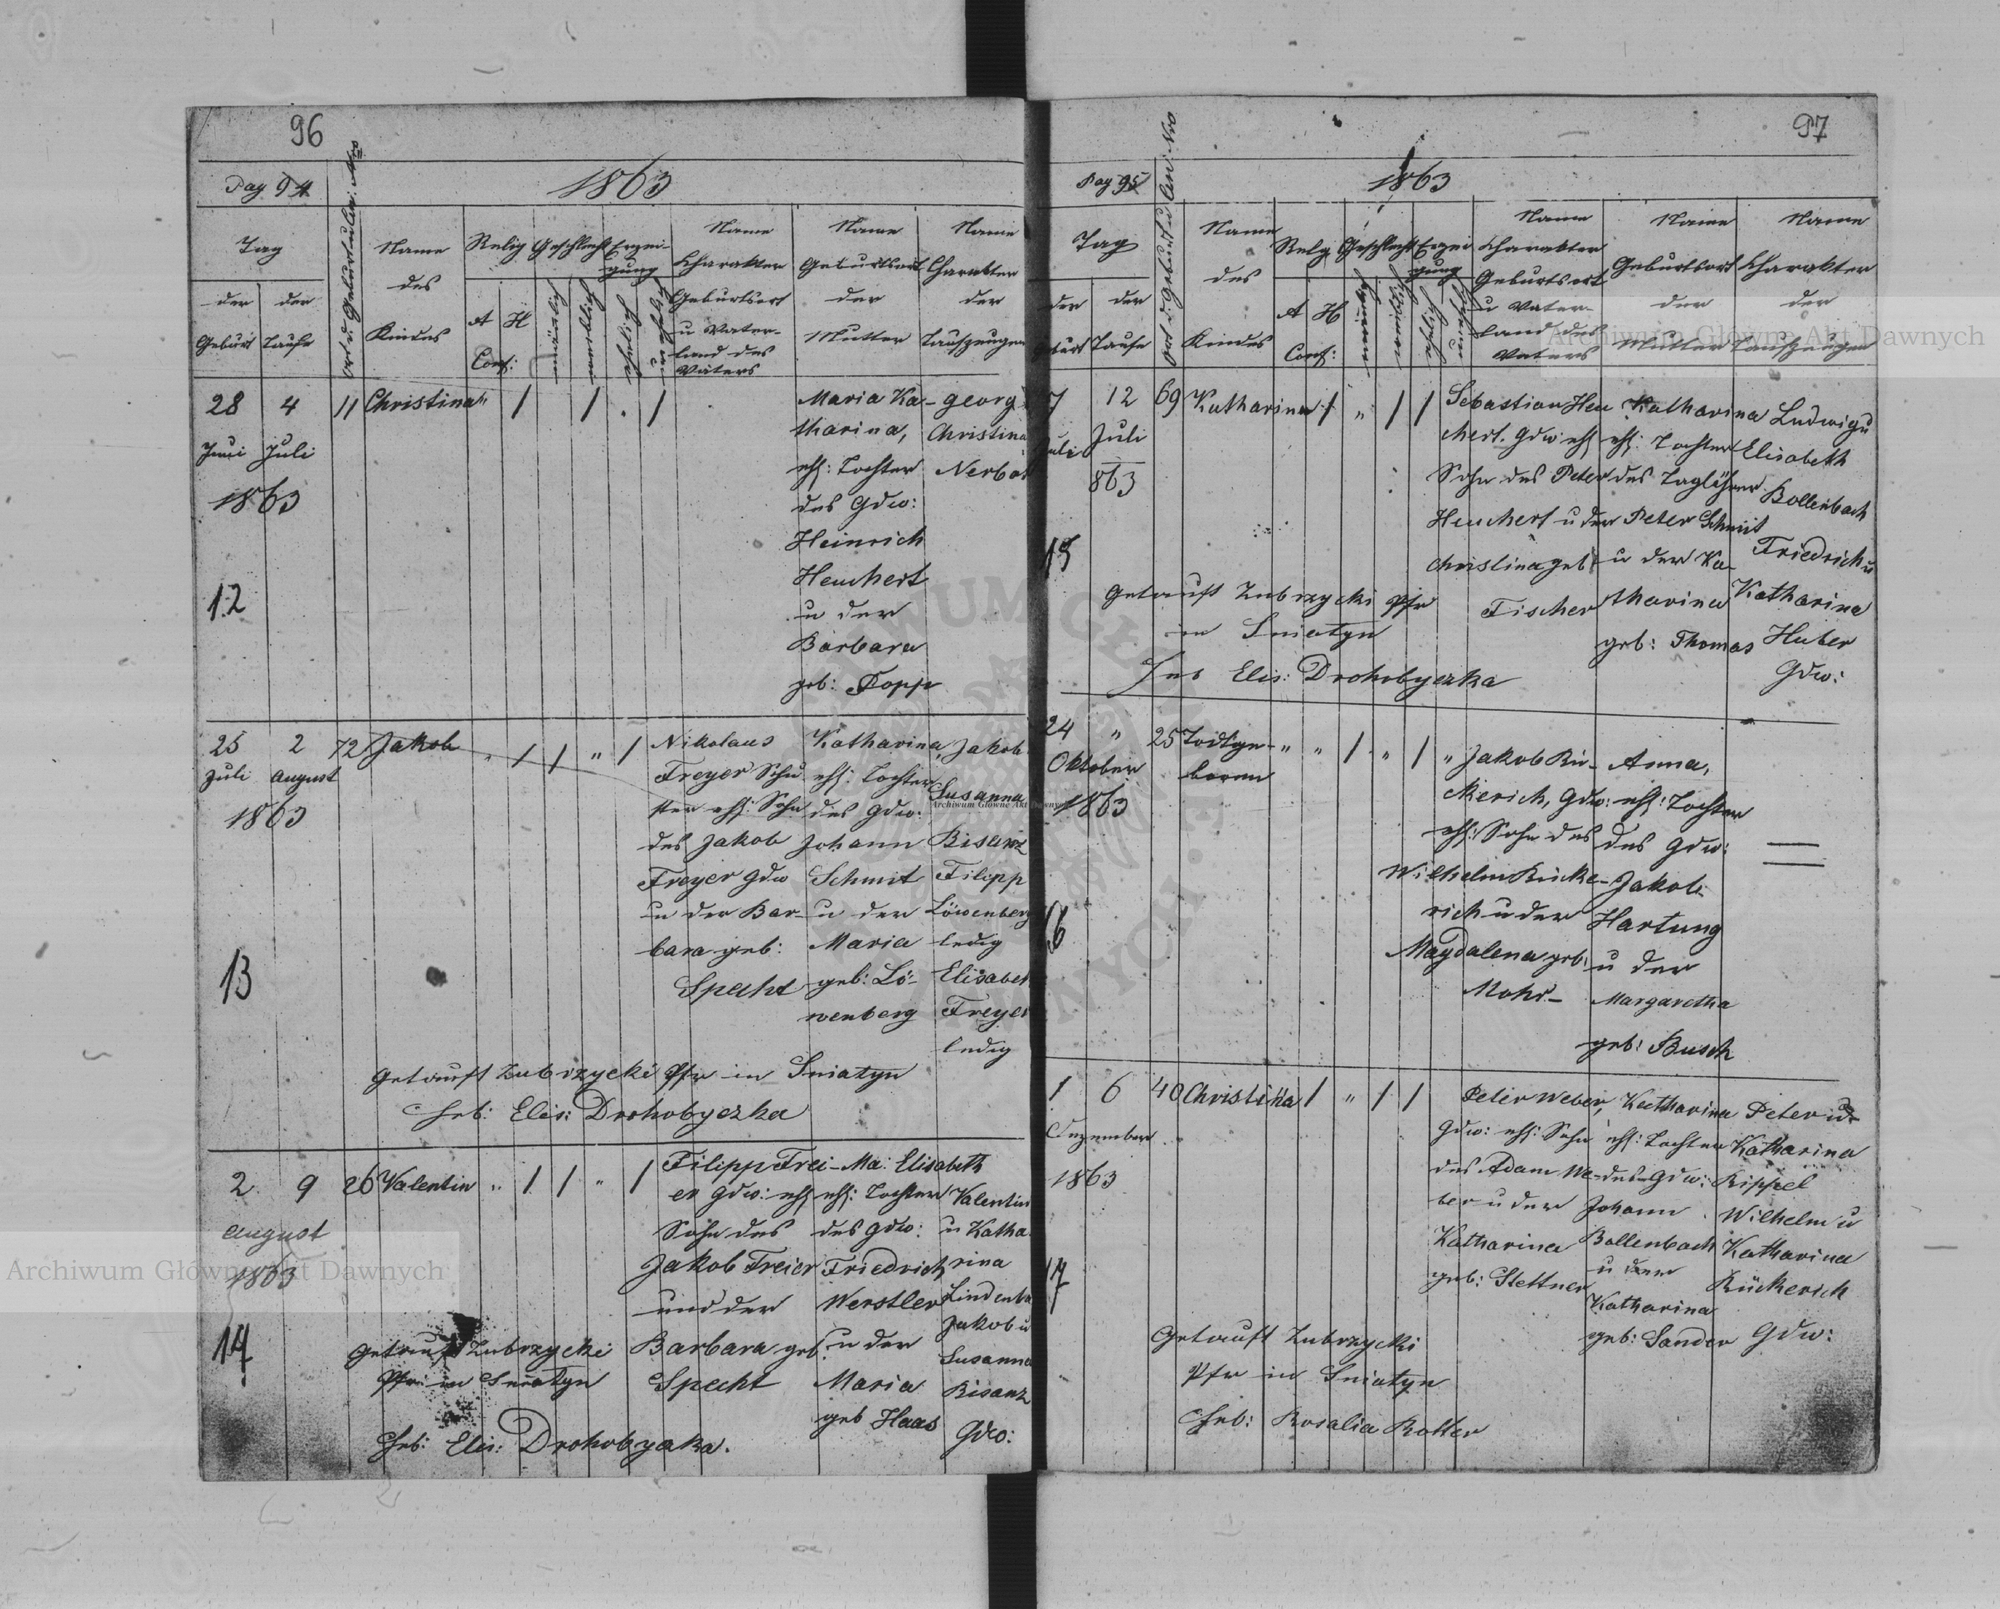 96
Pag 94
1863
Ort d. Geburt u. len: Nro
Tag
der Geburt
der Taufe
Name des Kindes
Relig
A H
Conf:
Geschlecht
männlich
weiblich
Erzeugung
ehelich
unehelich
Name
Charakter
Geburtsort
u Vater-
land des
Vaters
Name
Geburtsort
der
Mutter
Name
Charakter
der
Taufzeugen
28 4 11 Christina
Juni Juli
1863
12
Maria Ka-
tharina,
ehl: Tochter
des Gdw:
Heinrich
Heuchert
u der
Barbara
geb: Popp
Georg
Christina
25 2 72 Jakob
Juli August
1863
13
Nikolaus
Freyer Schu
ster ehl: Sohn
des Jakob
Freyer Gdw
u der Bar-
bara geb:
Specht
Katharina,
ehl: Tochter
des Gdw:
Johann
Schmit
u der
Maria
geb: Lö-
wenberg
Jakob
Susanna
Bisanz
Filipp
Löwenberg
ledig
Elisabeth
Freyer
ledig
Getauft Zubrzycki Pfr in Sniatyn
Heb: Elis: Drohobyczka
2 9 26 Valentin
August
1863
14
Filipp Frei-
er Gdw: ehl
Sohn des
Jakob Freier
und der
Barbara geb.
Specht
Ma: Elisabeth
ehl: Tochter
des Gdw:
Friedrich
Werstler
u der
Maria
geb Haas
Valentin
u Katha
rina
Jakob u
Susanna
Bisanz
Gdw:
Getauft Zubrzycki
Pfr in Sniatyn
Heb: Elis: Drohobyczka.
97
Pag 95
1863
Ort d. Geburt u len: Nro
Tag
der Geburt
der Taufe
Name
des
Kindes
Relg
A H
Conf:
Geschlecht
Erzei
gung
Name
Charakter
Geburtsort
u Vater-
land des
Vaters
Name
Geburtsort
der
Mutter
Name
Charakter
der
Taufzeugen
7 12 69 Katharina
Juli Juli
863
15
Sebastian Heu
chert. Gdw: ehl
Sohn des Peter
Heuchert u der
Christina geb
Fischer
Katharina
ehl: Tochter
des Taglöhner
Peter Schmit
u der Ka-
tharina
geb: Thomas
Ludwig u
Elisabeth
Bollenbach
Friedrich u
Katharina
Huber
Gdw:
Getauft Zubrzycki Pfr
in Sniatyn
Heb Elis: Drohobyczka
24 " 25 Todtge-
Oktober boren
1863
16
Jakob Rü-
ckerich, Gdw:
ehl: Sohn des
Wilhelm Rücke-
rich u der
Magdalena geb:
Mohr-
Anna,
ehl: Tochter
des Gdw:
Jakob
Hartung
u der
Margaretha
geb: Busch
1 6 40 Christina
Dezember
1863
17
Peter Weber,
Gdw: ehl: Sohn
des Adam We-
ber u der
Katharina
geb: Stettner
Katharina
ehl: Tochter
des Gdw:
Johann
Bollenbach
u der
Katharina
geb: Sander
Peter u
Katharina
Rippel
Wilhelm u
Katharina
Rückerich
Gdw:
Getauft Zubrzycki
Pfr in Sniatyn
Heb: Rosalia Rotter
Archiwum Główne Akt Dawnych
Archiwum Główne Akt Dawnych
Archiwum Główne Akt Dawnych